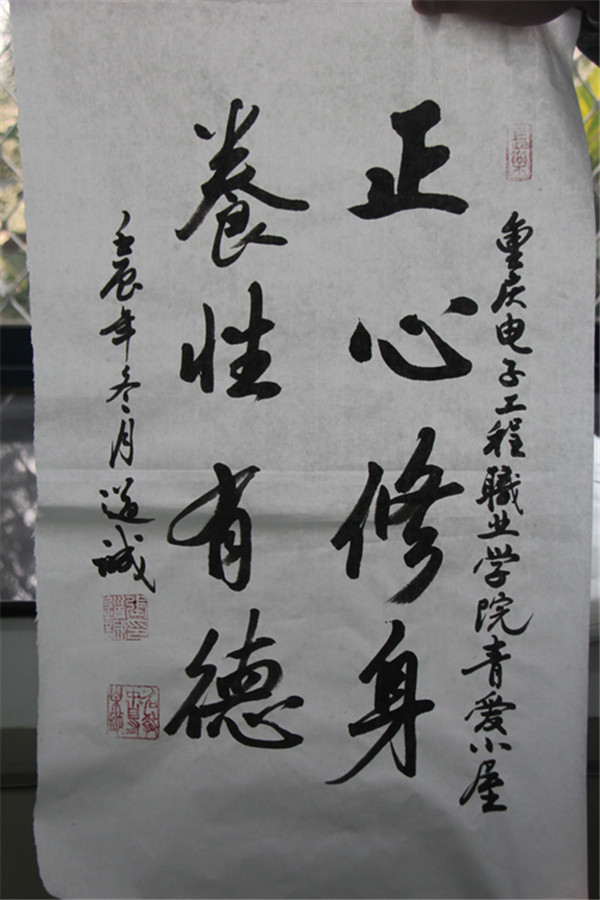 長樂
重庆电子工程職业学院青爱小屋
正心修身
養性有德
壬辰年冬月道诚